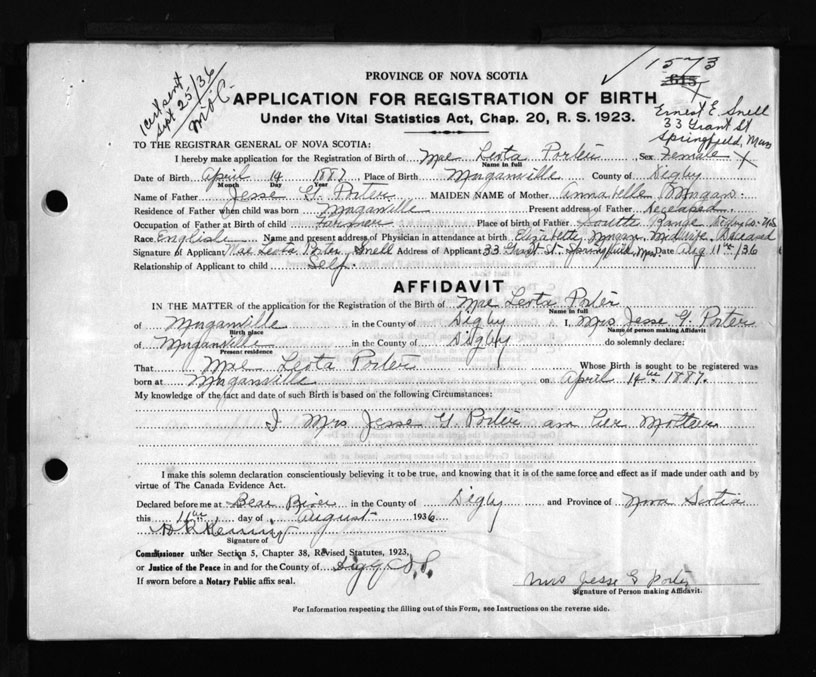 Cert sent
Sept 25/36
1573
615
PROVINCE OF NOVA SCOTIA
APPLICATION FOR REGISTRATION OF BIRTH
Under the Vital Statistics Act, Chap. 20, R. S. 1923.
Ernest E. Snell
33 Grant St
Springfield, Mass
TO THE REGISTRAR GENERAL OF NOVA SCOTIA:
I hereby make application for the Registration of Birth of Mae Leota Porter Sex Female
Name in full
Date of Birth April 14 1887 Place of Birth Morganville County of Digby
Month Day Year
Name of Father Jesse G. Porter MAIDEN NAME of Mother Annabelle Morgan
Residence of Father when child was born Morganville Present address of Father Deceased
Occupation of Father at Birth of child Farmer Place of birth of Father Range Digby Co. N.S
Race English Name and present address of Physician in attendance at birth Elizabeth Morgan Midwife Deceased
Signature of Applicant Mae Leota Porter Snell Address of Applicant 33 Grant St. Springfield, Mass Date Aug 11th /36
Relationship of Applicant to child Self
AFFIDAVIT
IN THE MATTER of the application for the Registration of the Birth of Mae Leota Porter
Name in full
of Morganville in the County of Digby I, Mrs Jesse G. Porter
Birth place Name of person making Affidavit
of Morganville in the County of Digby do solemnly declare:
Present residence
That Mae Leota Porter Whose Birth is sought to be registered was
born at Morganville on April 14th 1887.
My knowledge of the fact and date of such Birth is based on the following Circumstances:
I Mrs Jesse G. Porter am her Mother
I make this solemn declaration conscientiously believing it to be true, and knowing it is of the same force and effect as if made under oath and by
virtue of The Canada Evidence Act.
Declared before me at Bear River in the County of Digby and Province of Nova Scotia
this 11th day of August 1936
Signature of
Commissioner under Section 5, Chapter 38, Revised Statutes, 1923,
or Justice of the Peace in and for the County of
If sworn before a Notary Public affix seal.
Mrs Jesse G Porter
Signature of Person making Affidavit.
For Information respecting the filling out of this Form, see Instructions on the reverse side.